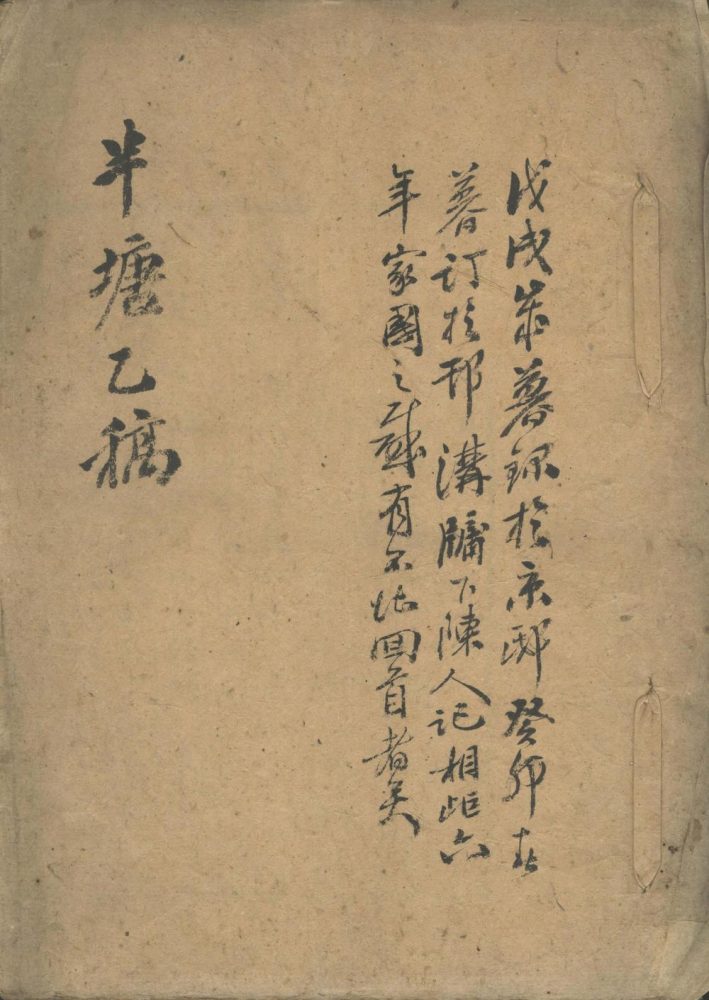 戊戌歲暮録於京邸癸卯春
暮訂於邗溝牖下陳人記相距六
年家國之感有不堪回首者矣
半塘乙稿